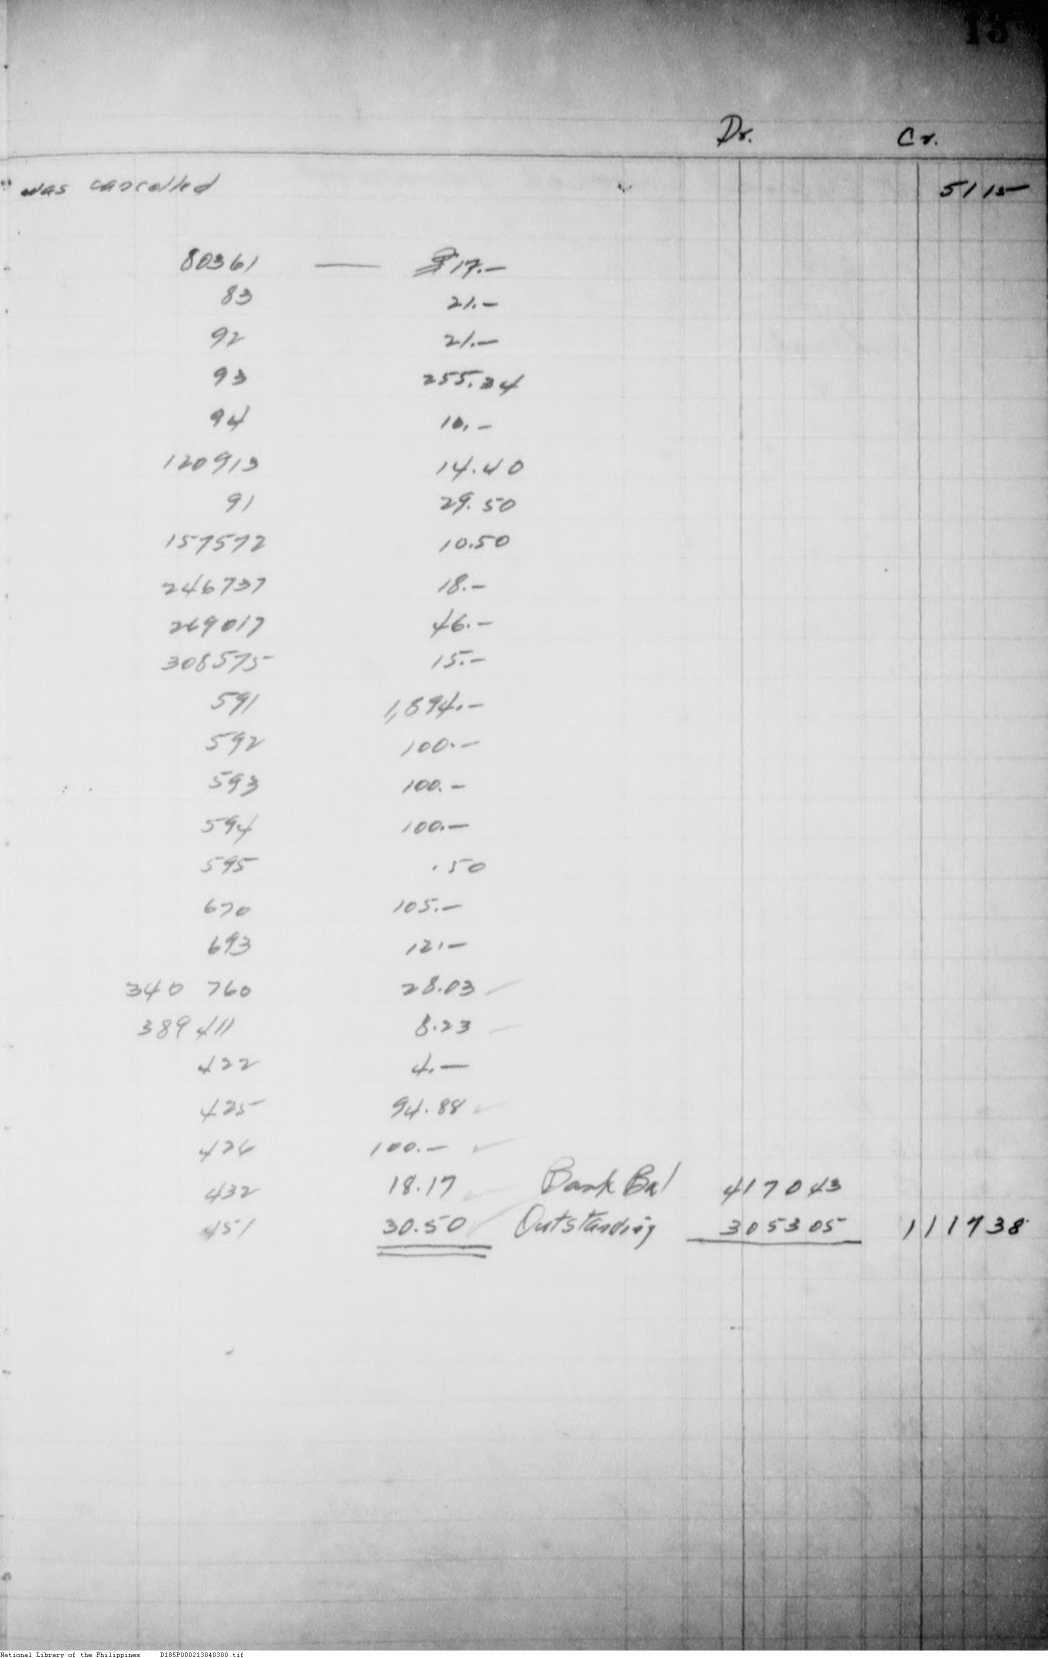 13
Dr. Cr.
" was cancelled 51 15
80361 — ₱ 17.—
83 21.—
92 21.—
93 255.34
94 10.—
120913 14.40
91 29.50
157572 10.50
246737 18.—
269017 46.—
308575 15.—
591 1,894.—
592 100.—
593 100.—
594 100.—
595 .50
670 105.—
693 12.—
340 760 28.03
389 411 8.23
422 4.—
425 94.88
426 100.—
432 18.17 Bank Bal 4170 43
451 30.50 Outstanding 3053 05 1117 38
National Library of the Philippines D185P000213040300.tif